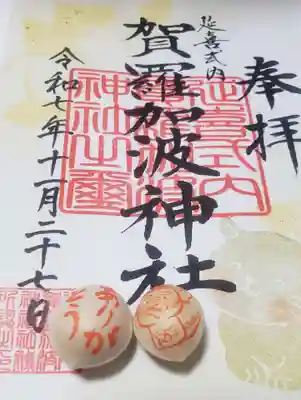 奉拝
延喜式内
賀羅加波神社
令和七年十一月二十七日
延喜式内
神社之璽
ありが
とう